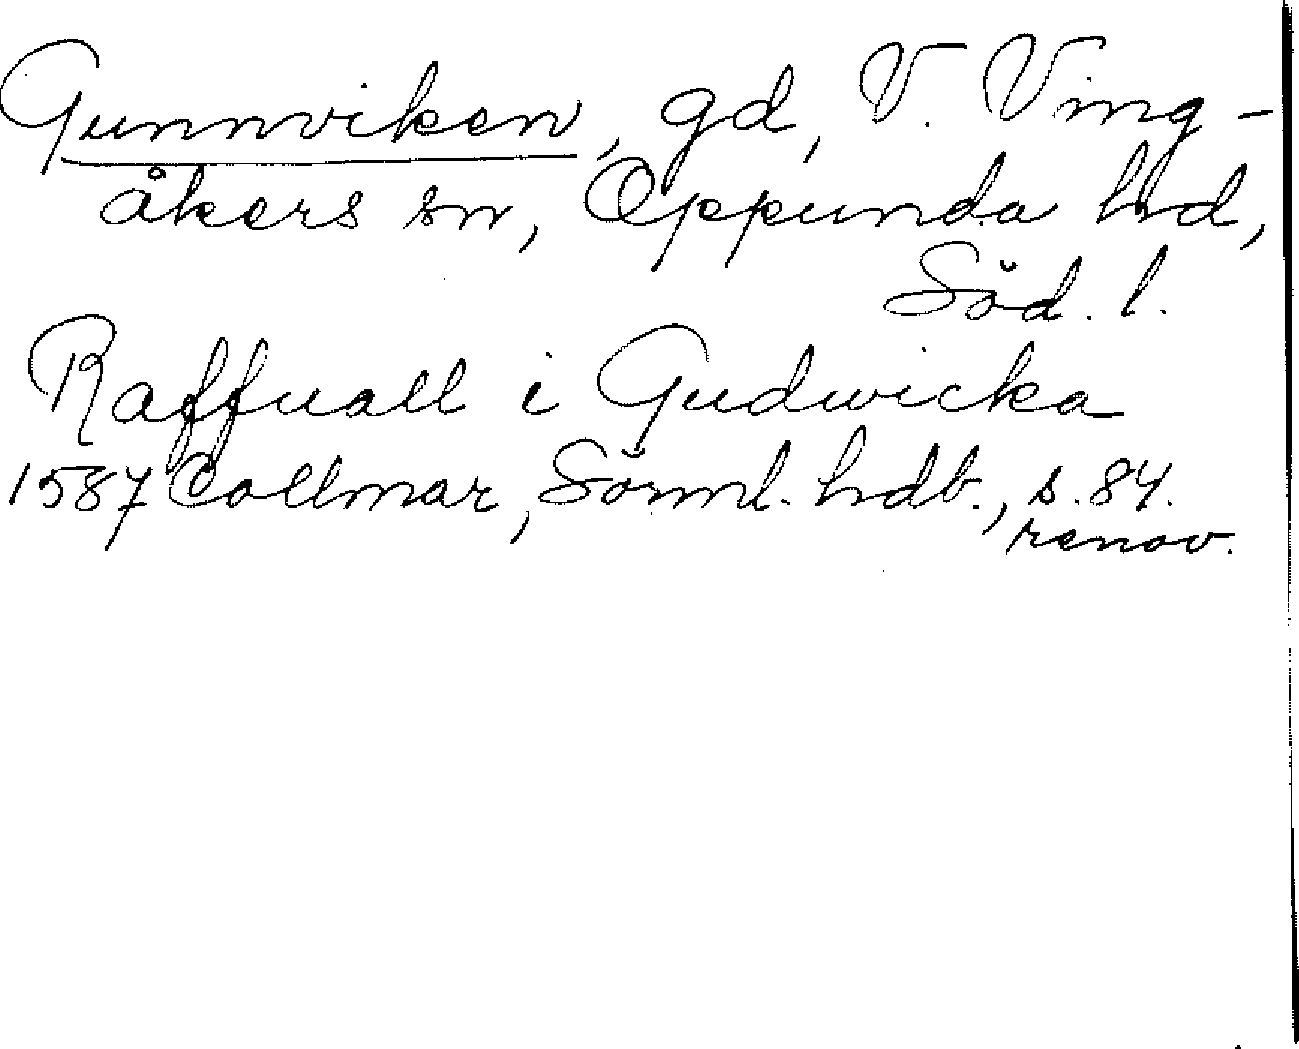 Gunnviken, gd, V. Ving-
åkers sn, Oppunda hd,
Söd. l.
Raffuall i Gudwicka
1587 Collmar, Sörml. hdb., s. 84.
renov.